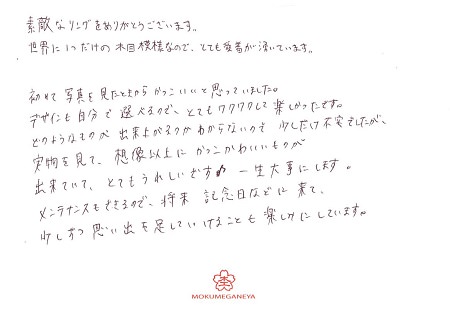 素敵なリングをありがとうございます。
世界に1つだけの木目模様なので、とても愛着が湧いています。
初めて写真を見たときからかっこいいと思っていました。
デザインも自分で選べるので、とてもワクワクして楽しかったです。
どのようなものが出来上がるかわからないので少しだけ不安でしたが、
実物を見て、想像以上にかっこかわいいものが
出来ていて、とてもうれしいです♪ 一生大事にします。
メンテナンスもできるので、将来 記念日などに来て、
少しずつ思い出を足していけることも楽しみにしています。
MOKUMEGANEYA